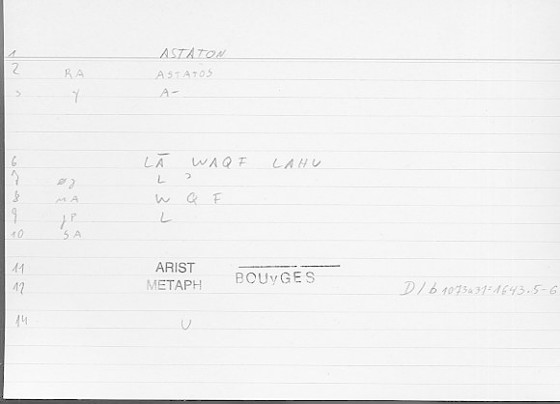 1 ASTATON
2 RA ASTATOS
3 y A-
6 LĀ WAQF LAHU
7 L ʾ
8 MA W Q F
9 JP L
10 SA
11 ARIST BOUyGES
12 METAPH D/b 1073a31=1643.5-6
14 U